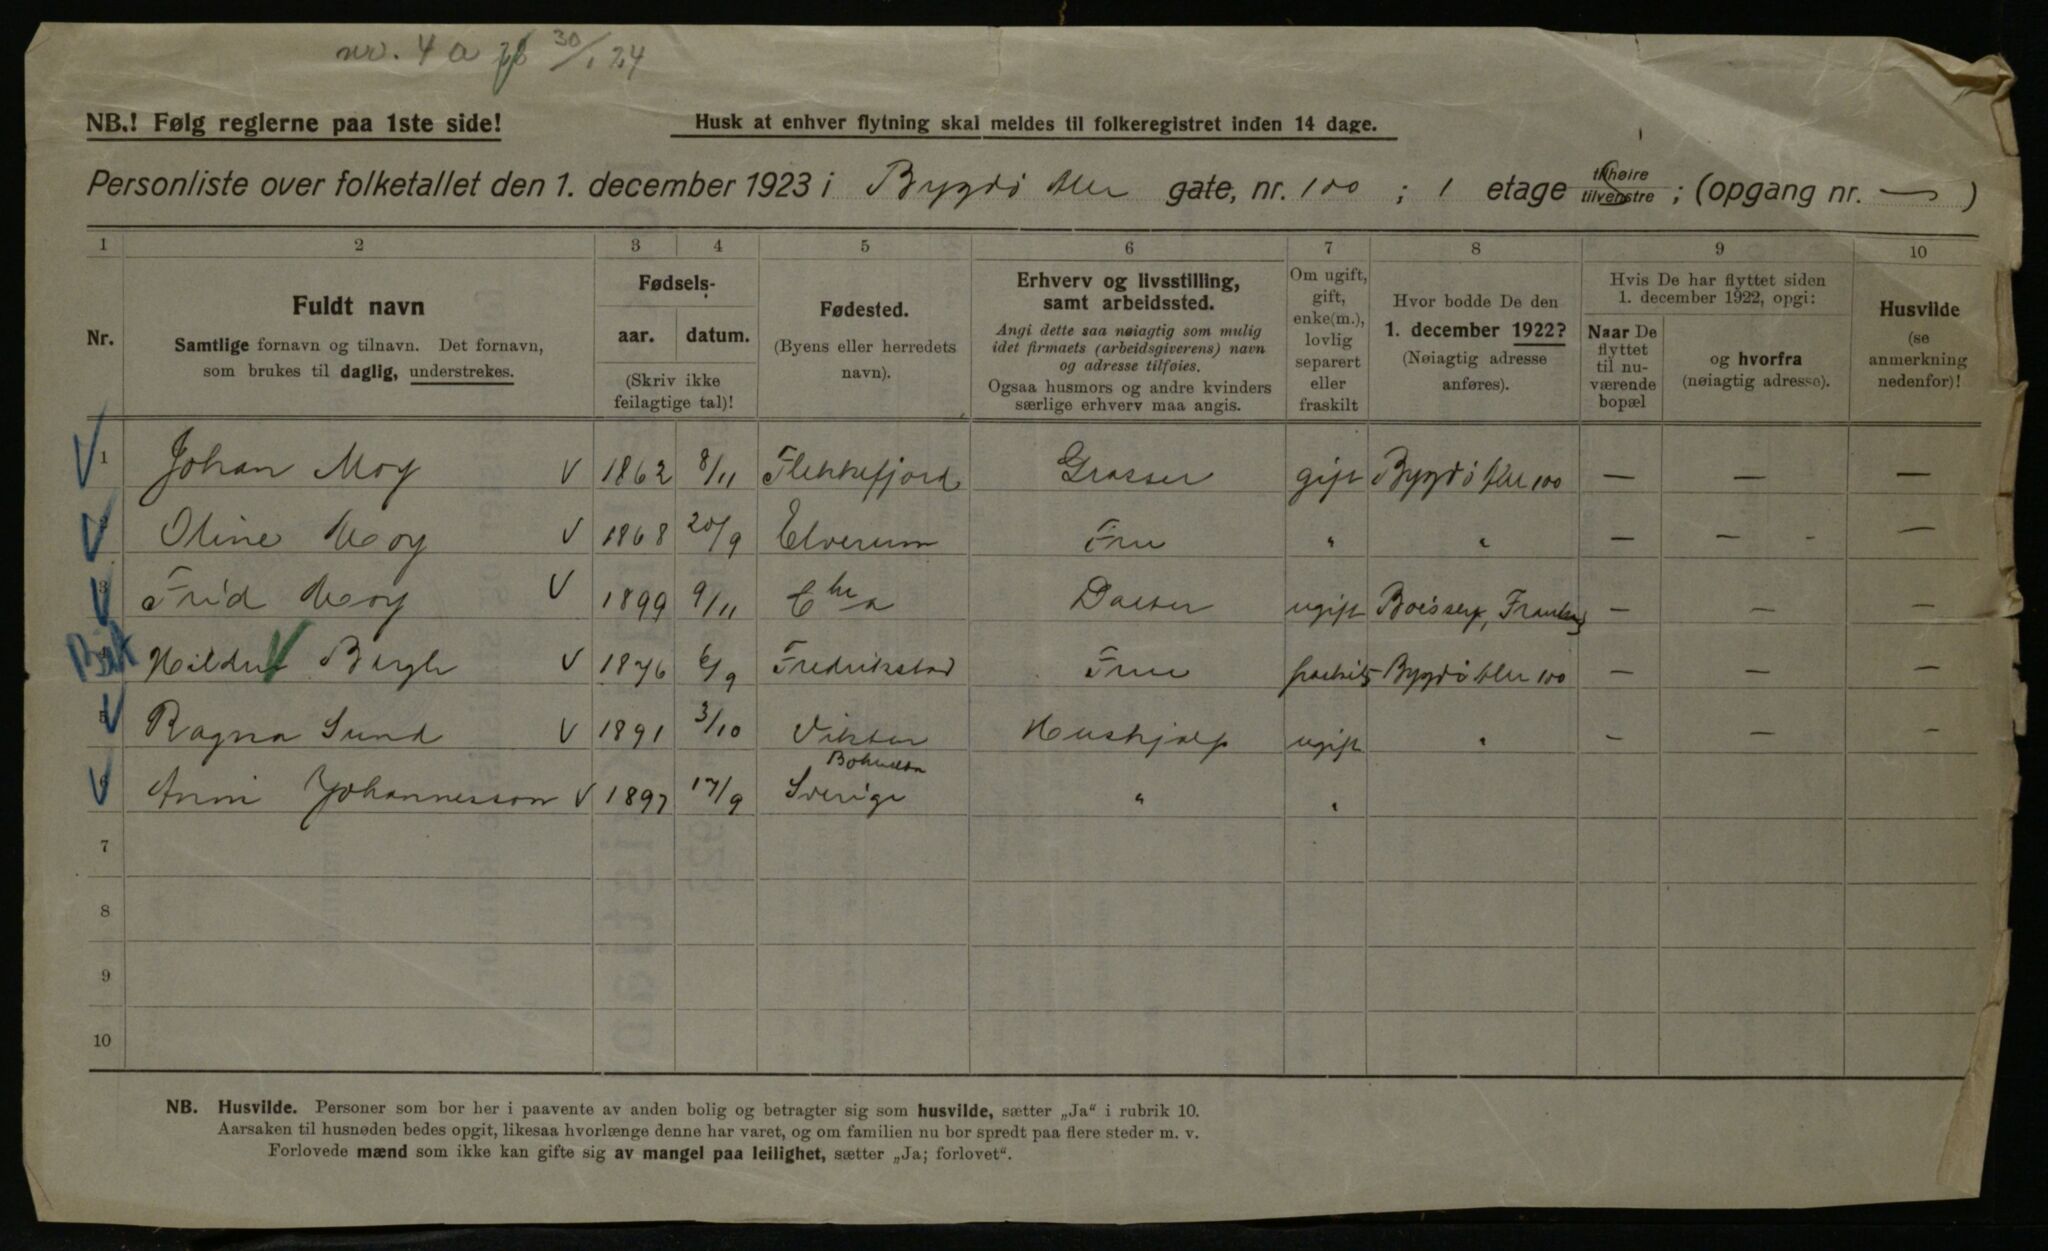 nr. 4 a 30/1 24
NB.! Følg reglerne paa 1ste side!
Husk at enhver flytning skal meldes til folkeregistret inden 14 dage.
Personliste over folketallet den 1. december 1923 i Bygdø Aller gate, nr. 100 ; 1 etage tilhøire tilvenstre ; (opgang nr. — )
1 2 3 4 5 6 7 8 9 10
Nr.
Fuldt navn
Samtlige fornavn og tilnavn. Det fornavn,
som brukes til daglig, understrekes.
Fødsels-
aar. datum.
(Skriv ikke
feilagtige tal)!
Fødested.
(Byens eller herredets
navn).
Erhverv og livsstilling,
samt arbeidssted.
Angi dette saa nøiagtig som mulig
idet firmaets (arbeidsgiverens) navn
og adresse tilføies.
Ogsaa husmors og andre kvinders
særlige erhverv maa angis.
Om ugift,
gift,
enke(m.),
lovlig
separert
eller
fraskilt
Hvor bodde De den
1. december 1922?
(Nøiagtig adresse
anføres).
Hvis De har flyttet siden
1. december 1922, opgi:
Naar De
flyttet
til nu-
værende
bopæl
og hvorfra
(nøiagtig adresse).
Husvilde
(se
anmerkning
nedenfor)!
1 Johan Moy V 1862 8/11 Flekkefjord Grosser gift Bygdø Aller 100 — — —
2 Oline Moy V 1868 20/9 Elverum Frue " " — — - —
3 Frid Moy V 1899 9/11 Chra Datter ugift Boissy, — — —
4 Hildur Bergh V 1876 6/9 Fredrikstad Frue fraskilt Bygdø Aller 100 — — —
5 Ragna Sund V 1891 3/10 Hushjælp ugift " — — —
6 Anni Johannesson V 1897 17/9 Sverige " "
7
8
9
10
NB. Husvilde. Personer som bor her i paavente av anden bolig og betragter sig som husvilde, sætter „Ja“ i rubrik 10.
Aarsaken til husnøden bedes opgit, likesaa hvorlænge denne har varet, og om familien nu bor spredt paa flere steder m. v.
Forlovede mænd som ikke kan gifte sig av mangel paa leilighet, sætter „Ja; forlovet“.